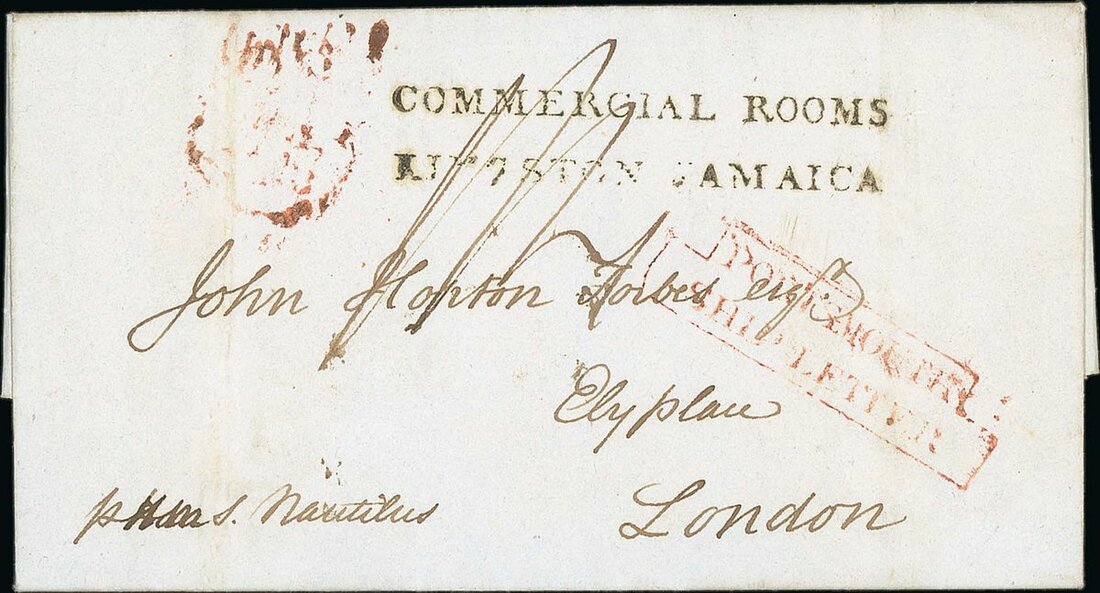 COMMERCIAL ROOMS
KINGSTON JAMAICA
PORTSMOUTH
SHIP LETTER
John Horton Forbes Esqr
Ely place
London
p H M S. Nautilus